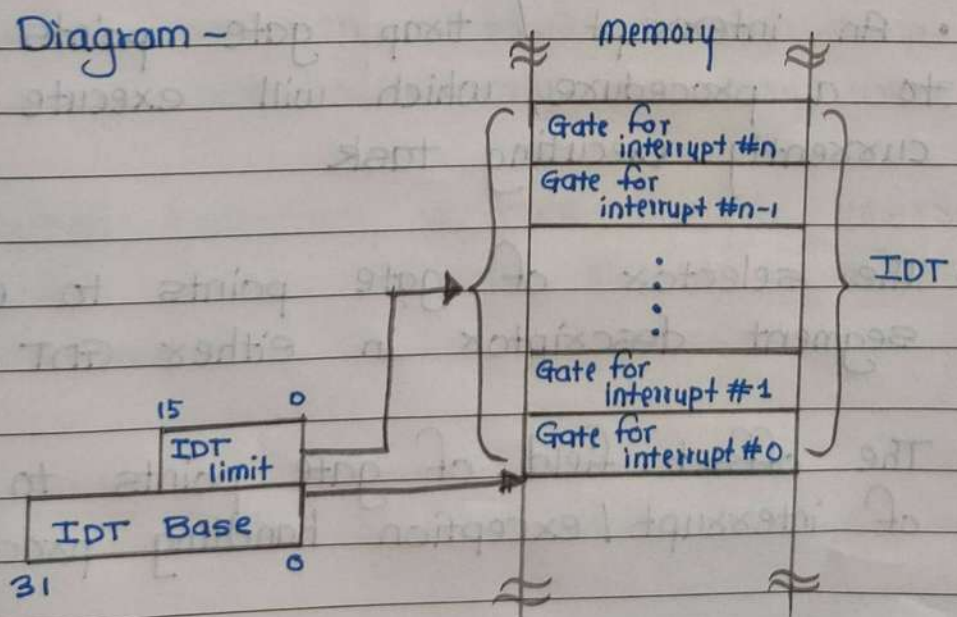 Diagram -
Memory
Gate for
interrupt #n
Gate for
interrupt #n-1
IDT
Gate for
interrupt #1
Gate for
interrupt #0
15 0
IDT
limit
IDT Base
31 0